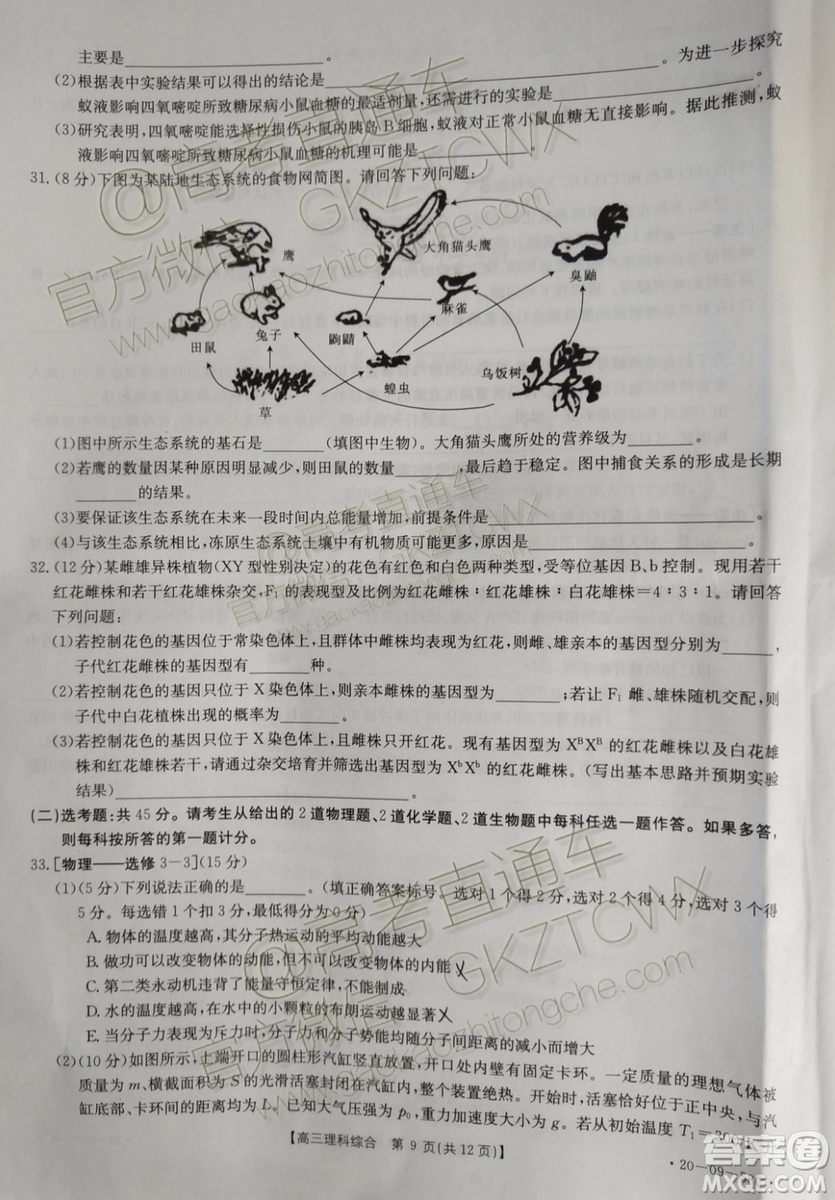 主要是____________________。
(2)根据表中实验结果可以得出的结论是____________________。为进一步探究
蚁液影响四氧嘧啶所致糖尿病小鼠血糖的最适剂量,还需进行的实验是____________________。
(3)研究表明,四氧嘧啶能选择性损伤小鼠的胰岛B细胞,蚁液对正常小鼠血糖无直接影响。据此推测,蚁
液影响四氧嘧啶所致糖尿病小鼠血糖的机理可能是____________________。
31.(8分)下图为某陆地生态系统的食物网简图。请回答下列问题:
鹰
大角猫头鹰
臭鼬
麻雀
田鼠
兔子
鼩鼱
蝗虫
乌饭树
草
(1)图中所示生态系统的基石是________(填图中生物)。大角猫头鹰所处的营养级为________。
(2)若鹰的数量因某种原因明显减少,则田鼠的数量________,最后趋于稳定。图中捕食关系的形成是长期
________的结果。
(3)要保证该生态系统在未来一段时间内总能量增加,前提条件是____________________。
(4)与该生态系统相比,冻原生态系统土壤中有机物质可能更多,原因是____________________。
32.(12分)某雌雄异株植物(XY型性别决定)的花色有红色和白色两种类型,受等位基因B、b控制。现用若干
红花雌株和若干红花雄株杂交,F₁的表现型及比例为红花雌株∶红花雄株∶白花雄株=4∶3∶1。请回答
下列问题:
(1)若控制花色的基因位于常染色体上,且群体中雌株均表现为红花,则雌、雄亲本的基因型分别为________,
子代红花雌株的基因型有________种。
(2)若控制花色的基因只位于X染色体上,则亲本雌株的基因型为________;若让F₁雌、雄株随机交配,则
子代中白花植株出现的概率为________。
(3)若控制花色的基因只位于X染色体上,且雌株只开红花。现有基因型为XᴮXᴮ的红花雌株以及白花雄
株和红花雄株若干,请通过杂交培育并筛选出基因型为XᵇXᵇ的红花雌株。(写出基本思路并预期实验
结果)
(二)选考题:共45分。请考生从给出的2道物理题、2道化学题、2道生物题中每科任选一题作答。如果多答,
则每科按所答的第一题计分。
33.[物理——选修3-3](15分)
(1)(5分)下列说法正确的是________。(填正确答案标号。选对1个得2分,选对2个得4分,选对3个得
5分。每选错1个扣3分,最低得分为0分)
A.物体的温度越高,其分子热运动的平均动能越大
B.做功可以改变物体的动能,但不可以改变物体的内能
C.第二类永动机违背了能量守恒定律,不能制成
D.水的温度越高,在水中的小颗粒的布朗运动越显著
E.当分子力表现为斥力时,分子力和分子势能均随分子间距离的减小而增大
(2)(10分)如图所示,上端开口的圆柱形汽缸竖直放置,开口处内壁有固定卡环。一定质量的理想气体被
质量为m、横截面积为S的光滑活塞封闭在汽缸内,整个装置绝热。开始时,活塞恰好位于正中央,与汽
缸底部、卡环间的距离均为L。已知大气压强为p₀,重力加速度大小为g,气体的温度T₁=300
【高三理科综合 第9页(共12页)】
·20-09-
@高考直通车
官方微信:GKZTCWX
www.gaokaozhitongche.com
@高考直通车
官方微信:GKZTCWX
www.gaokaozhitongche.com